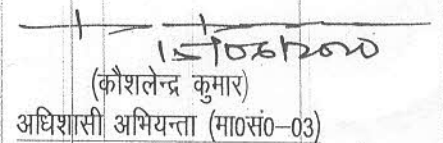 15/06/2020
(कौशलेन्द्र कुमार)
अधिशासी अभियन्ता (मा0सं0–03)